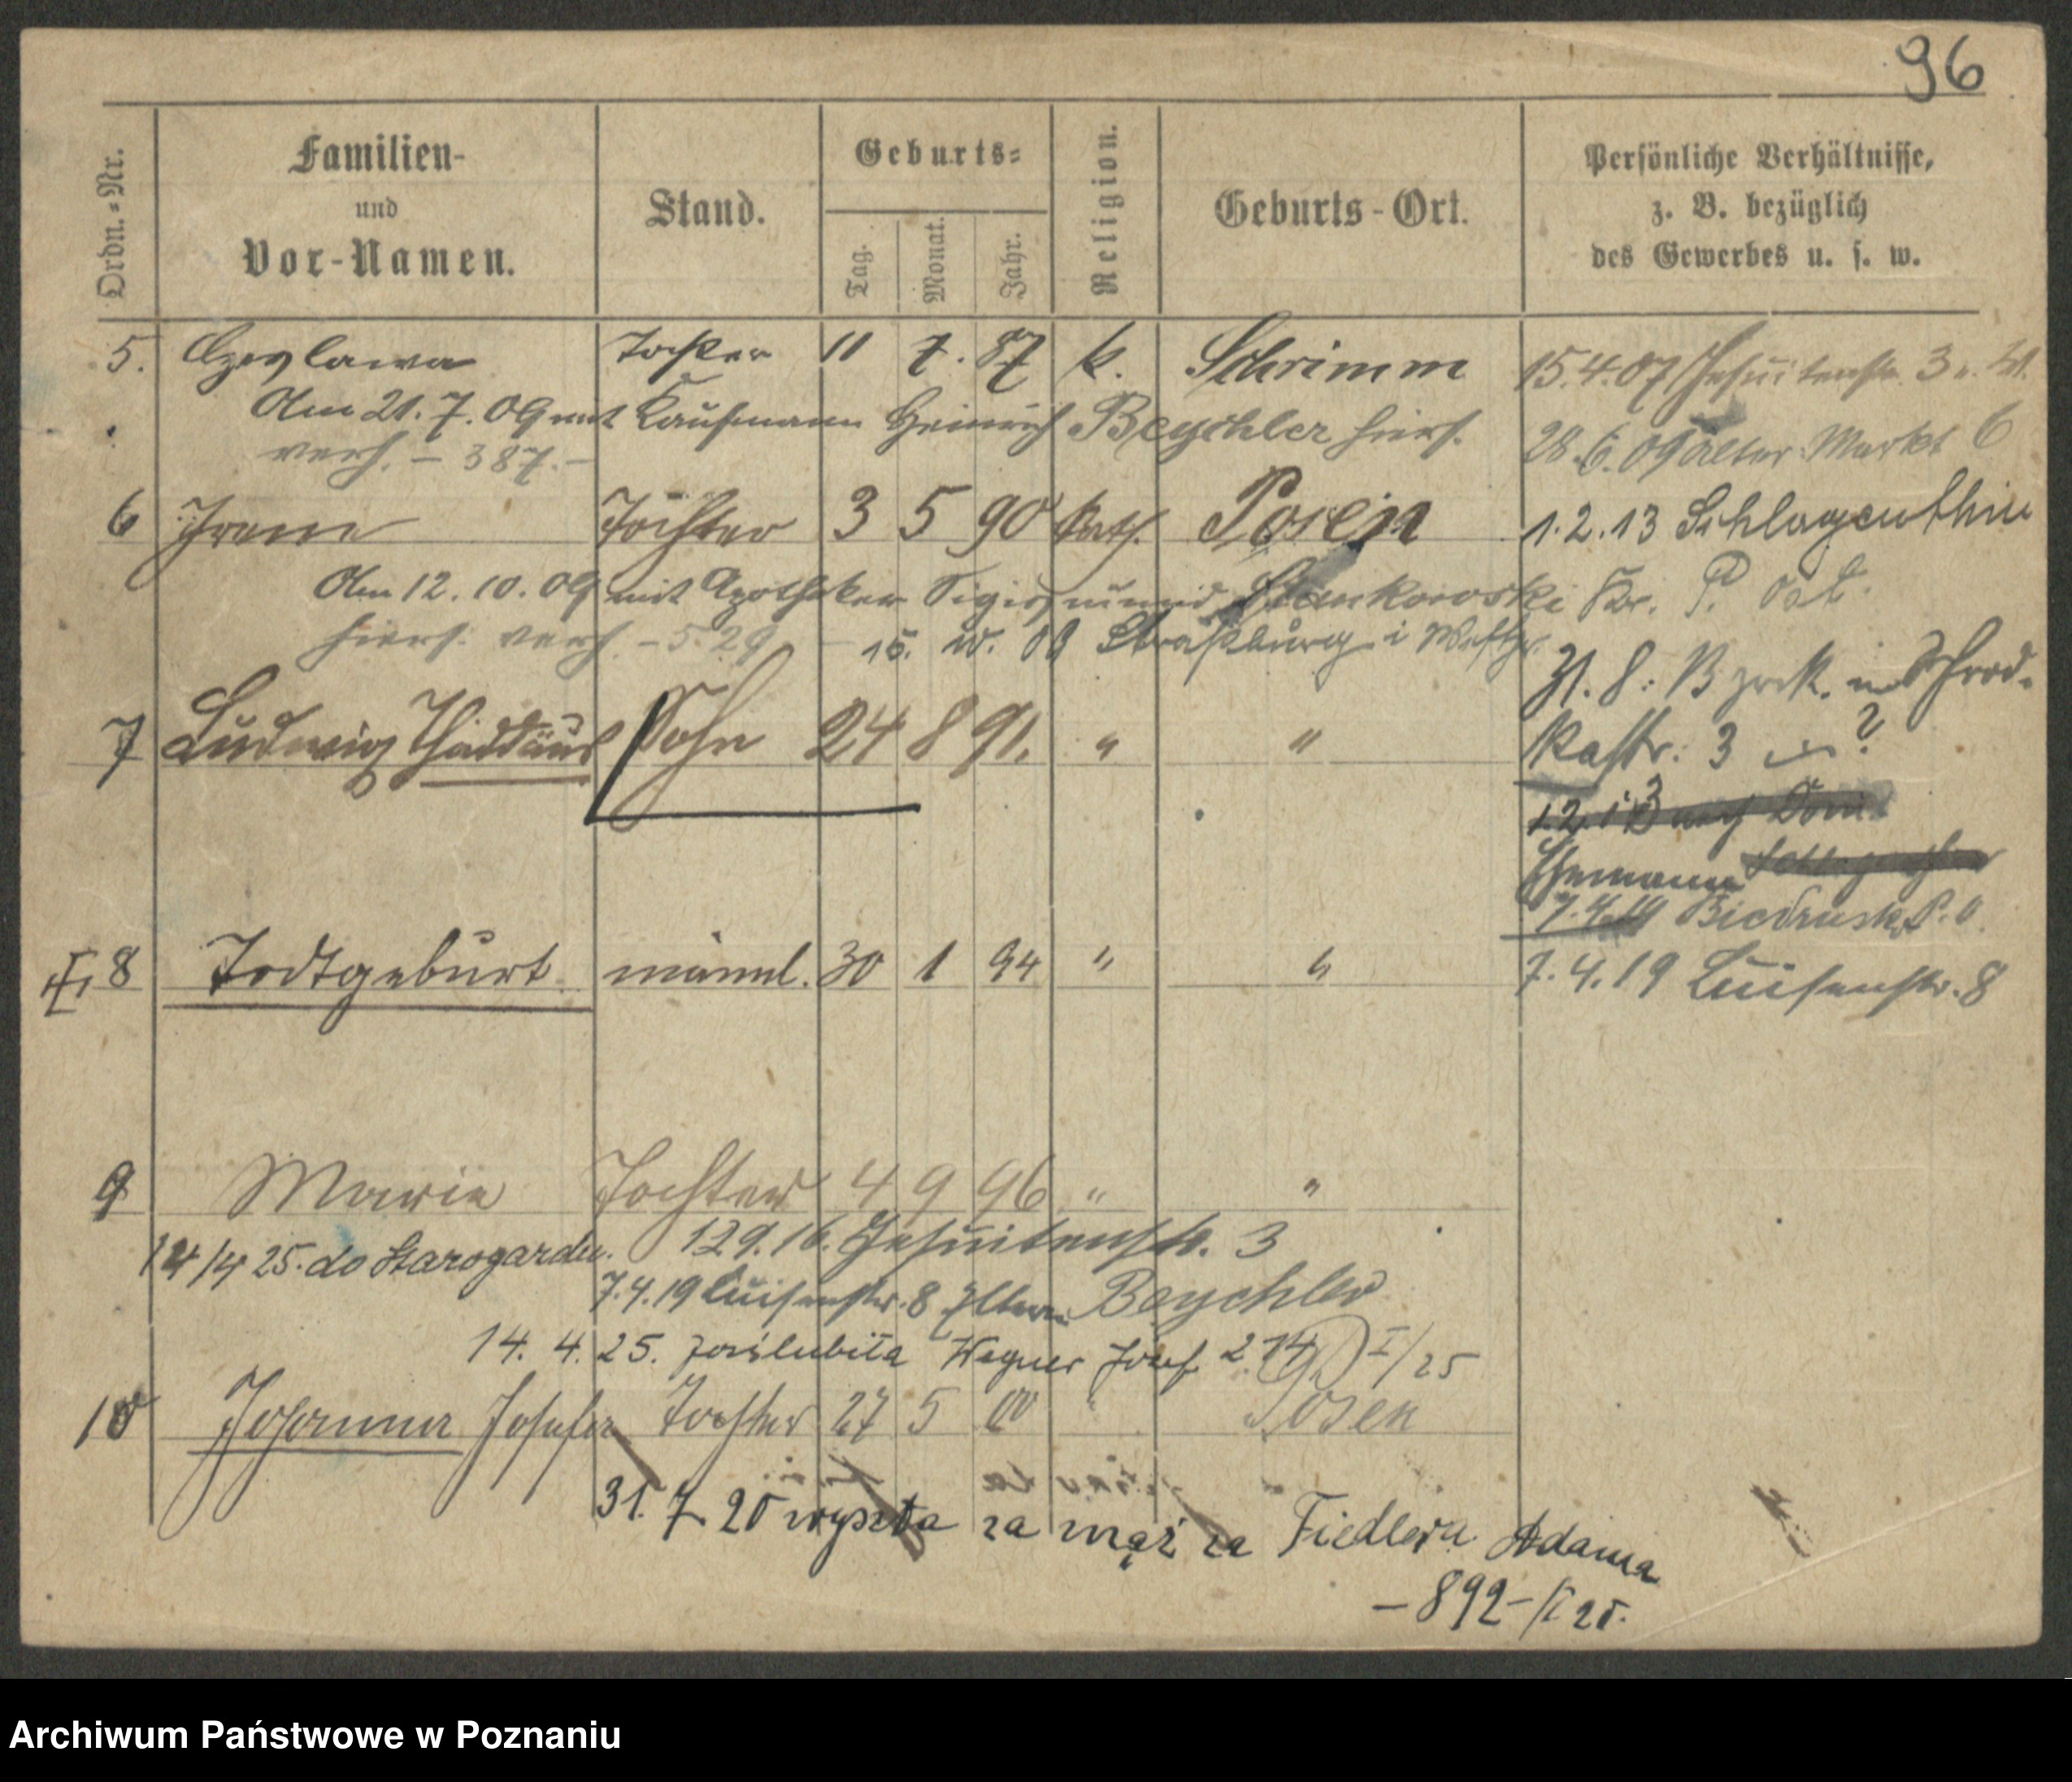 96
Ordn.-Nr.
Familien-
und
Vor-Namen.
Stand.
Geburts-
Tag.
Monat.
Jahr.
Religion.
Geburts-Ort.
Persönliche Verhältnisse,
z. B. bezüglich
des Gewerbes u. s. w.
5. Czeslawa Tochter 11 7. 87 k. Schrimm 15.4.07 Jesuitenstr. 3
Am 21.7.09 mit Kaufmann Heinrich Beychler hiers. 28.6.09 Alter Markt 6
verh. – 387.–
6 Irene Tochter 3 5 90 kath. Posen 1.2.13 Schlagenthin
Am 12.10.09 mit Apotheker Sigismund Stankowski Kr. P. Ost.
hiers. verh. – 529 – 15. 09 Straßburg i Westpr.
7 Ludwig Thaddäus Sohn 24 8 91. " "
3
12.13 nach Dom.
Ehemann
7.4.19 Biedrusk P. O.
8 Todtgeburt männl. 30 1 94 " " 7.4.19 Luisenstr. 8
9 Marie Tochter 4 9 96 " "
14/4 25. do Starogardu. 12 9.16. Jesuitenstr. 3
7.4.19 Luisenstr. 8 Eltern Beychler
14. 4. 25. poślubiła Wegner Józef 274 I/25
10 Johanna Josefa Tochter 27 5 00 " Posen
31. 7 25 wyszła za mąż za Fiedlera Adama
– 892 –/II 25.
Archiwum Państwowe w Poznaniu